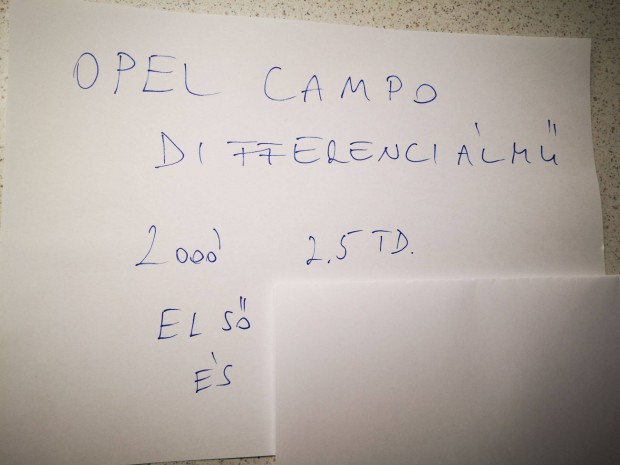 OPEL CAMPO
DIFFERENCIÁLMŰ
2000 2.5 TD.
ELSŐ
ÉS